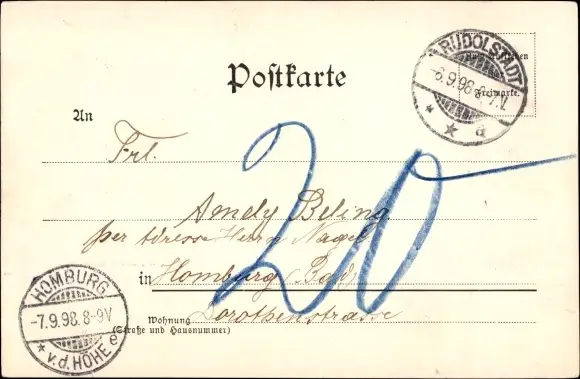 Postkarte
RUDOLSTADT
6.9.98. 8-9V.
Freimarke.
a
An
Frl.
Amely Beling
per Adresse Herrn Nagel
in Homburg (Bad)
Wohnung Dorotheenstrasse
(Straße und Hausnummer)
20
HOMBURG
-7.9.98. 8-9V
v.d. HÖHE e